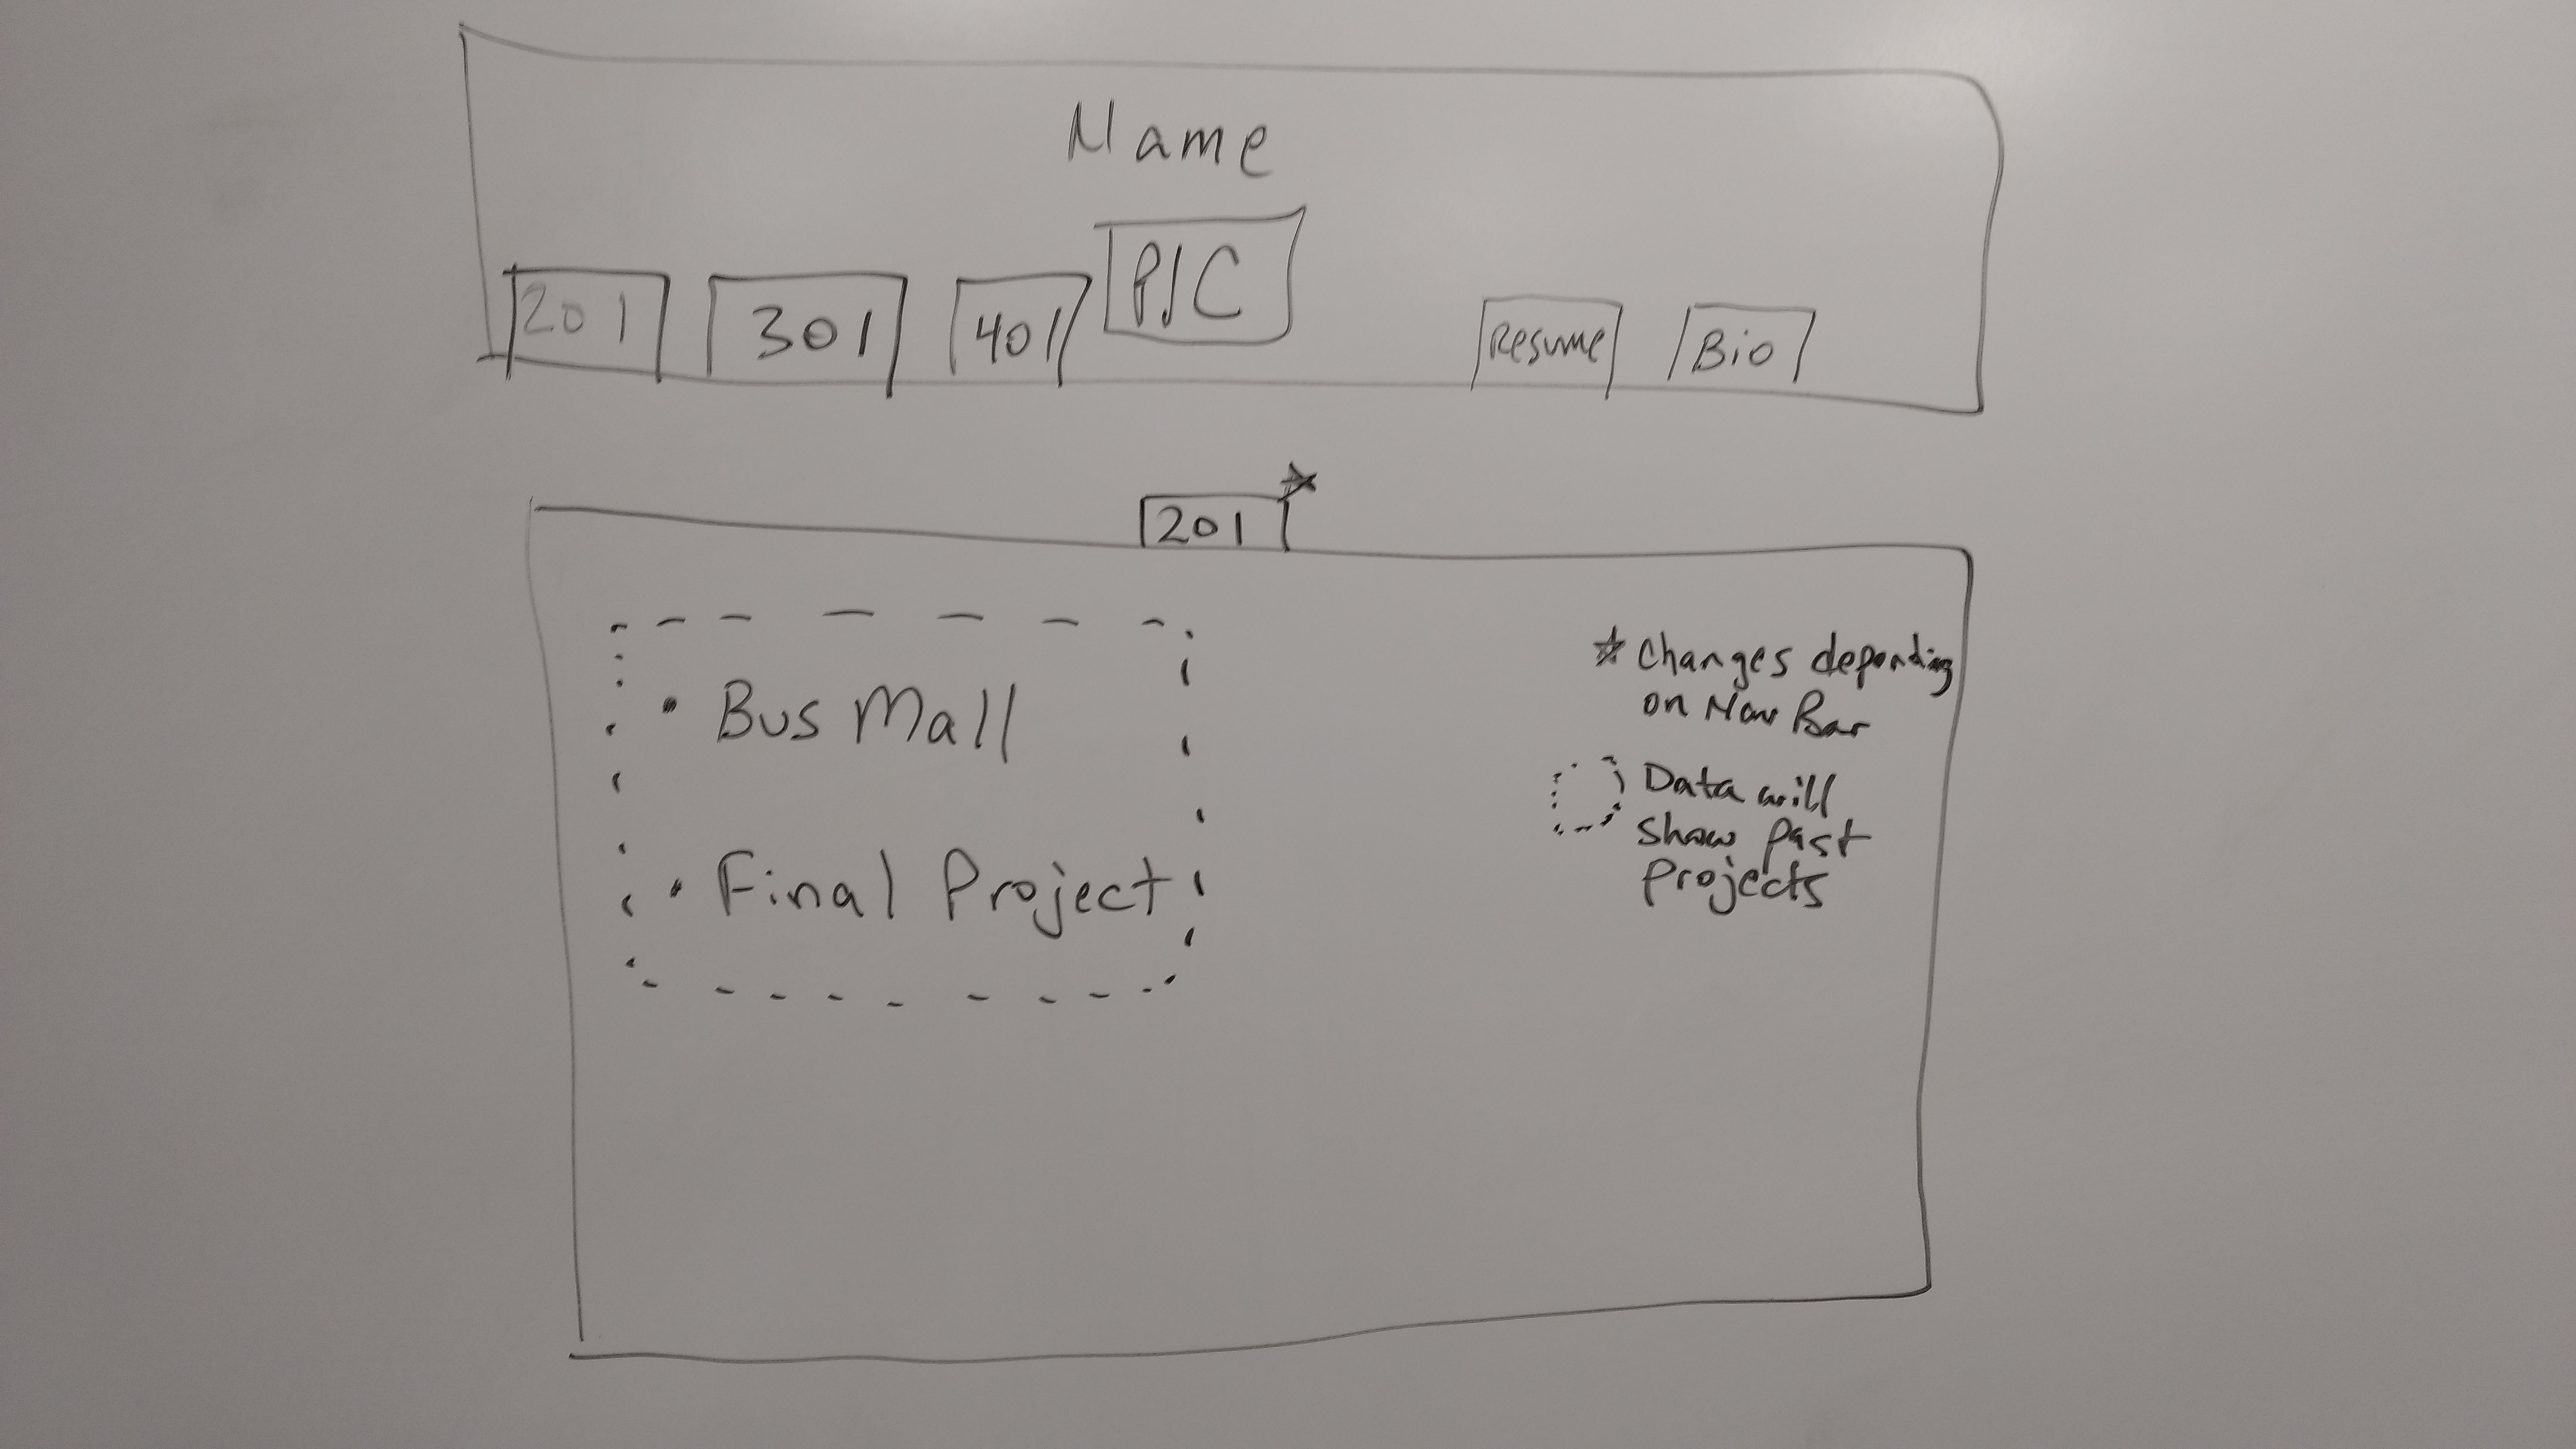 Name
201
301
401
PIC
Resume
Bio
201
• Bus Mall
• Final Project
* Changes depending
on Nav Bar
Data will
Show Past
Projects